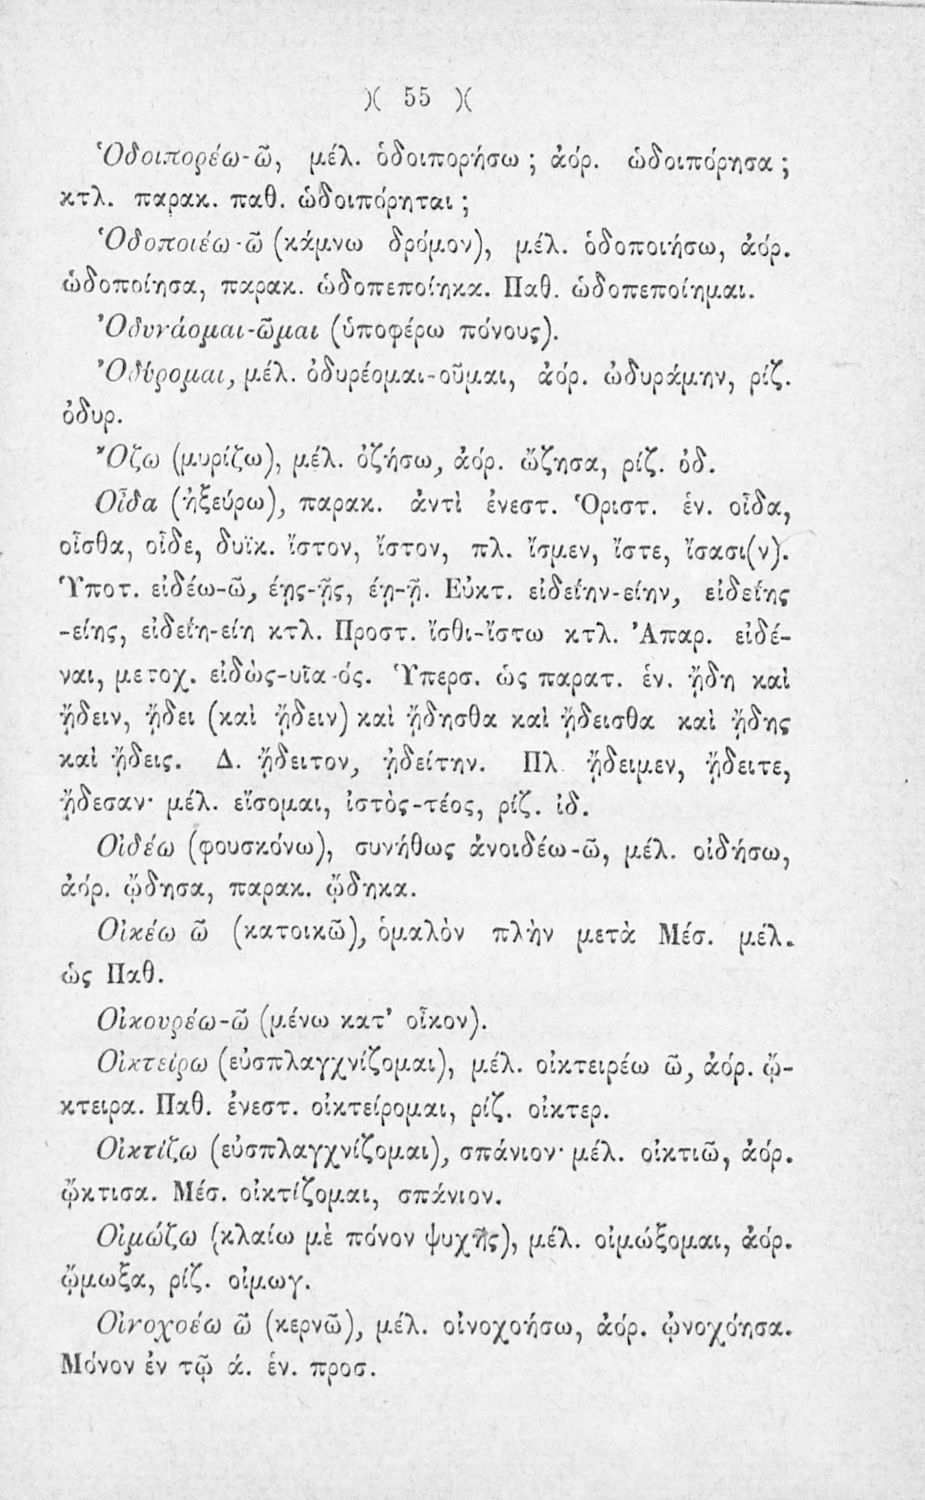 )( 55 )(
Ὁδοιπορέω-ῶ, μέλ. ὁδοιπορήσω ; ἀόρ. ὡδοιπόρησα ;
κτλ. παρακ. παθ. ὡδοιπόρηται ;
Ὁδοποιέω-ῶ (κάμνω δρόμον), μέλ. ὁδοποιήσω, ἀόρ.
ὡδοποίησα, παρακ. ὡδοπεποίηκα. Παθ. ὡδοπεποίημαι.
Ὀδυνάομαι-ῶμαι (ὑποφέρω πόνους).
Ὀδύρομαι, μέλ. ὀδυρέομαι-οῦμαι, ἀόρ. ὠδυράμην, ρίζ.
ὀδυρ.
Ὄζω (μυρίζω), μέλ. ὀζήσω, ἀόρ. ὤζησα, ρίζ. ὀδ.
Οἶδα (ἠξεύρω), παρακ. ἀντὶ ἐνεστ. Ὁριστ. ἑν. οἶδα,
οἶσθα, οἶδε, δυϊκ. ἴστον, ἴστον, πλ. ἴσμεν, ἴστε, ἴσασι(ν).
Ὑποτ. εἰδέω-ῶ, έῃς-ῇς, έῃ-ῇ. Εὐκτ. εἰδείην-είην, εἰδείης
-είης, εἰδείη-είη κτλ. Προστ. ἴσθι-ἴστω κτλ. Ἀπαρ. εἰδέ-
ναι, μετοχ. εἰδὼς-υῖα-ός. Ὑπερσ. ὡς παρατ. ἑν. ᾔδη καὶ
ᾔδειν, ᾔδει (καὶ ᾔδειν) καὶ ᾔδησθα καὶ ᾔδεισθα καὶ ᾔδης
καὶ ᾔδεις. Δ. ᾔδειτον, ᾐδείτην. Πλ. ᾔδειμεν, ᾔδειτε,
ᾔδεσαν· μέλ. εἴσομαι, ἰστὸς-τέος, ρίζ. ἰδ.
Οἰδέω (φουσκόνω), συνήθως ἀνοιδέω-ῶ, μέλ. οἰδήσω,
ἀόρ. ᾤδησα, παρακ. ᾤδηκα.
Οἰκέω ῶ (κατοικῶ), ὁμαλὸν πλὴν μετὰ Μέσ. μέλ.
ὡς Παθ.
Οἰκουρέω-ῶ (μένω κατ' οἶκον).
Οἰκτείρω (εὐσπλαγχνίζομαι), μέλ. οἰκτειρέω ῶ, ἀόρ. ᾤ-
κτειρα. Παθ. ἐνεστ. οἰκτείρομαι, ρίζ. οἰκτερ.
Οἰκτίζω (εὐσπλαγχνίζομαι), σπάνιον· μέλ. οἰκτιῶ, ἀόρ.
ᾤκτισα. Μέσ. οἰκτίζομαι, σπάνιον.
Οἰμώζω (κλαίω μὲ πόνον ψυχῆς), μέλ. οἰμώξομαι, ἀόρ.
ᾤμωξα, ρίζ. οἰμωγ.
Οἰνοχοέω ῶ (κερνῶ), μέλ. οἰνοχοήσω, ἀόρ. ᾠνοχόησα.
Μόνον ἐν τῷ ά. ἑν. προσ.